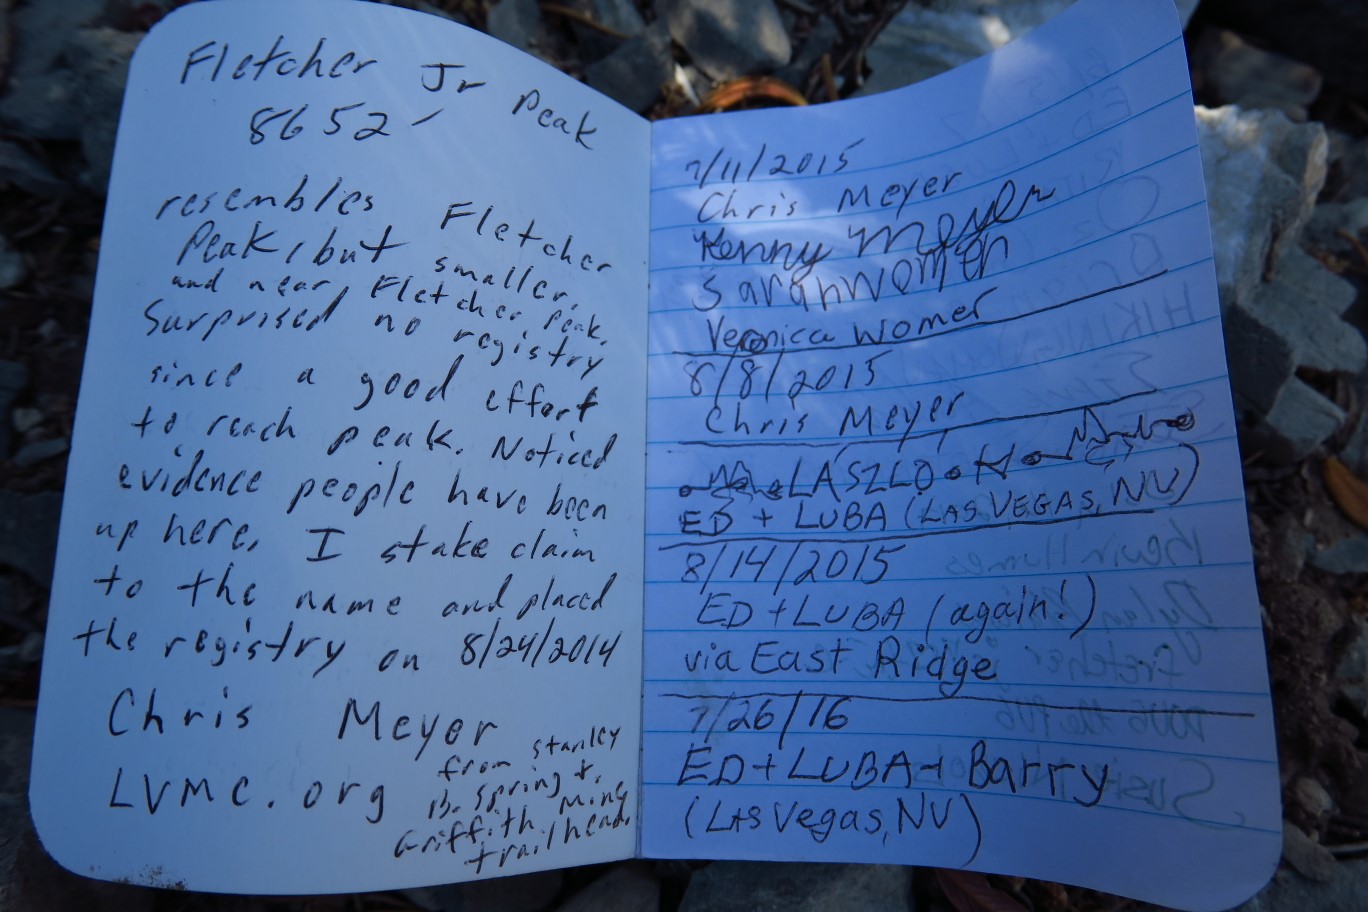 Fletcher Jr Peak
8652'
resembles Fletcher
Peak, but smaller,
and near Fletcher Peak.
Surprised no registry
since a good effort
to reach peak. Noticed
evidence people have been
up here. I stake claim
to the name and placed
the registry on 8/24/2014
Chris Meyer
LVMC.org
from stanley
B. Spring +
Griffith Mine
trailhead.
7/11/2015
Chris Meyer
Kenny Meyer
Sarah Women
Veronica Womer
8/8/2015
Chris Meyer
LÁSZLÓ
ED + LUBA (LAS VEGAS, NV)
8/14/2015
ED + LUBA (again!)
via East Ridge
7/26/16
ED + LUBA + Barry
(LAS Vegas, NV)